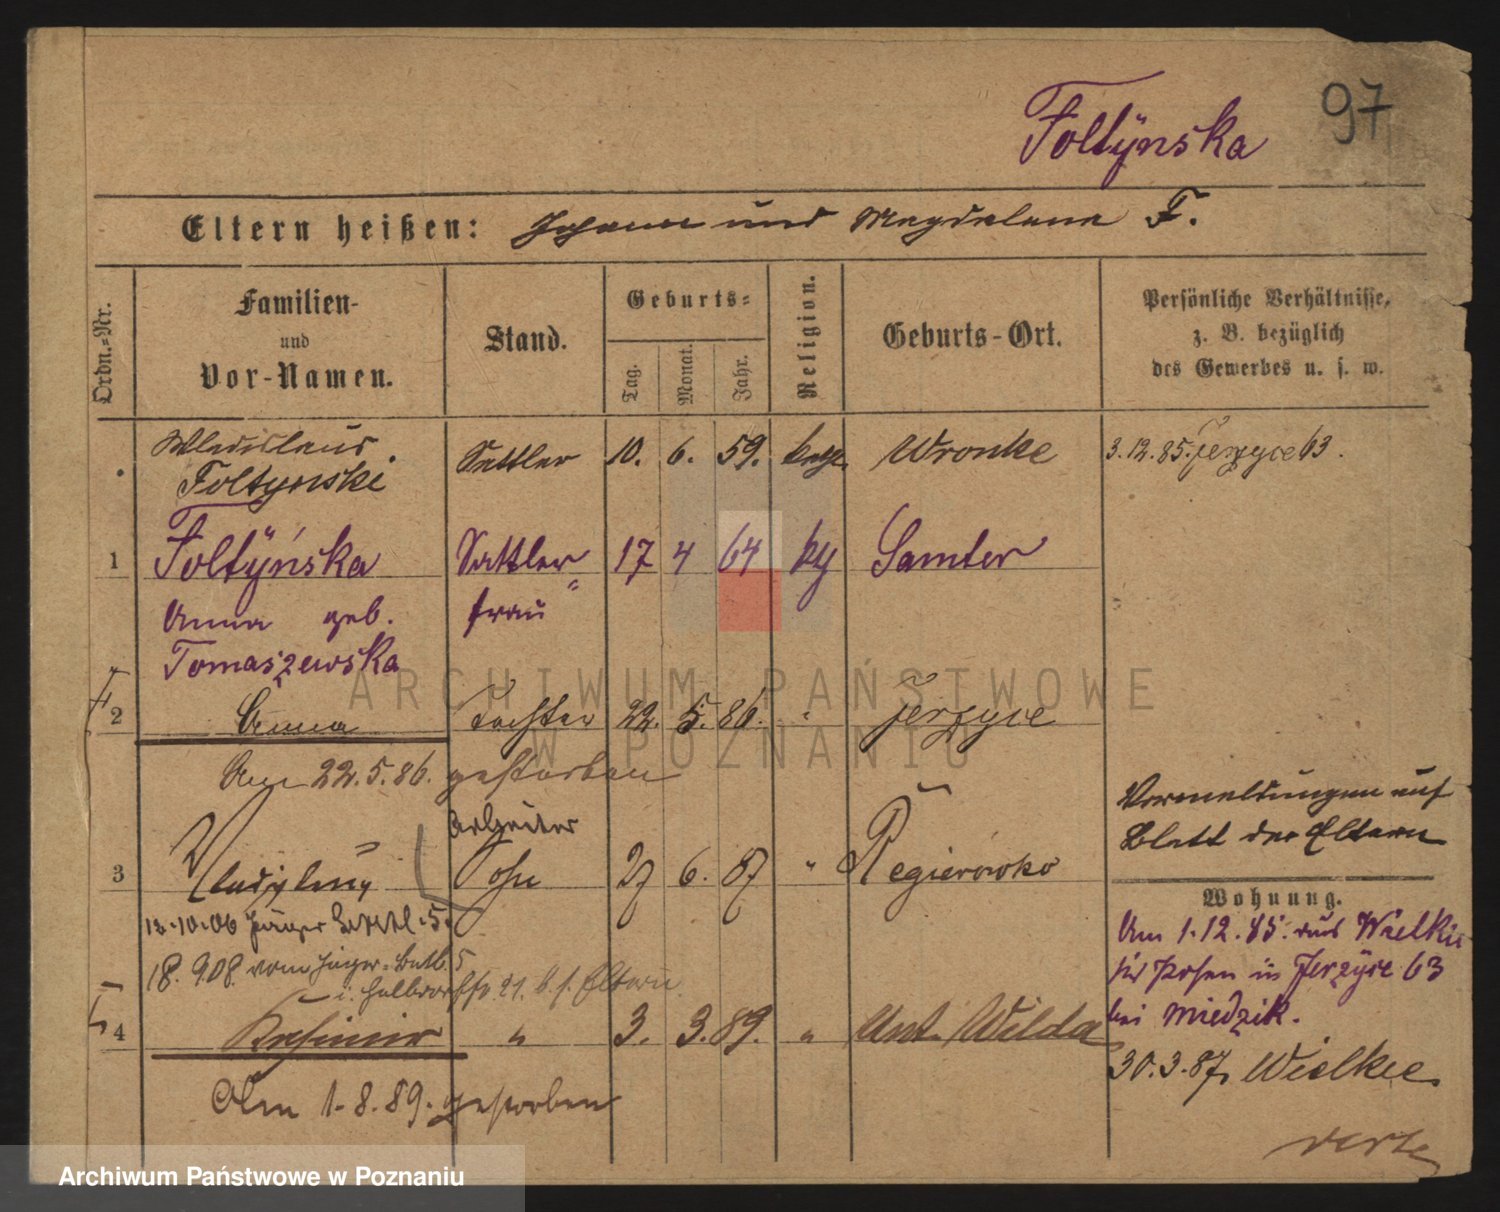 Foltÿnska 97
Eltern heißen: Johann und Magdalena F.
Ordn.-Nr.
Familien-
und
Vor-Namen.
Stand.
Geburts-
Tag.
Monat.
Jahr.
Religion.
Geburts-Ort.
Persönliche Verhältnisse,
z. B. bezüglich
des Gewerbes u. s. w.
Wladislaus
Foltynski
Sattler 10. 6. 59. kath. Wronke 3.12.85. Jerzyce 63.
1 Foltÿńska Sattler 17 4 64 Samter
Anna geb. frau
Tomaszewska
2 Anna Tochter 22. 5. 86. " Jerzyce
Am 22.5.86. gestorben
Arbeiter
3 Sohn 27 6. 87 " Regierowko
12.10.06 Jäger 5.
18.9.08. vom Jäger-Batl. 5
21. b. s. Eltern
4 Kasimir " 3. 3. 89. " Unt. Wilda
Am 1.8.89. gestorben
Vermeldungen auf
Blatt der Eltern
Wohnung.
Am 1.12.85. aus Wielkie
Posen in Jerzÿce 63
bei Miedzik.
30.3.87. Wielkie.
verte
ARCHIWUM PAŃSTWOWE
W POZNANIU
Archiwum Państwowe w Poznaniu